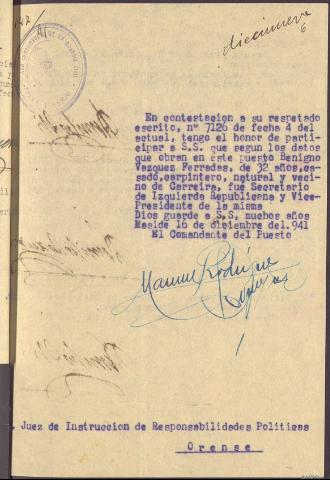 diecinueve
En contestacion a su respetado
escrito, nº 7126 de fecha 4 del
actual, tengo el honor de partici-
par a S.S. que segun los datos
que obran en este puesto Benigno
Vazquez Ferradas, de 32 años,ca-
sado,carpintero, natural y veci-
no de Garreira, fue Secretario
de Izquierda Republicana y Vice-
Presidente de la misma
Dios guarde a S.S, muchos años
Maside 16 de diciembre del.941
El Comandante del Puesto
Manuel Rodrigue
. Juez de Instruccion de Responsabilidades Politicas
Orense